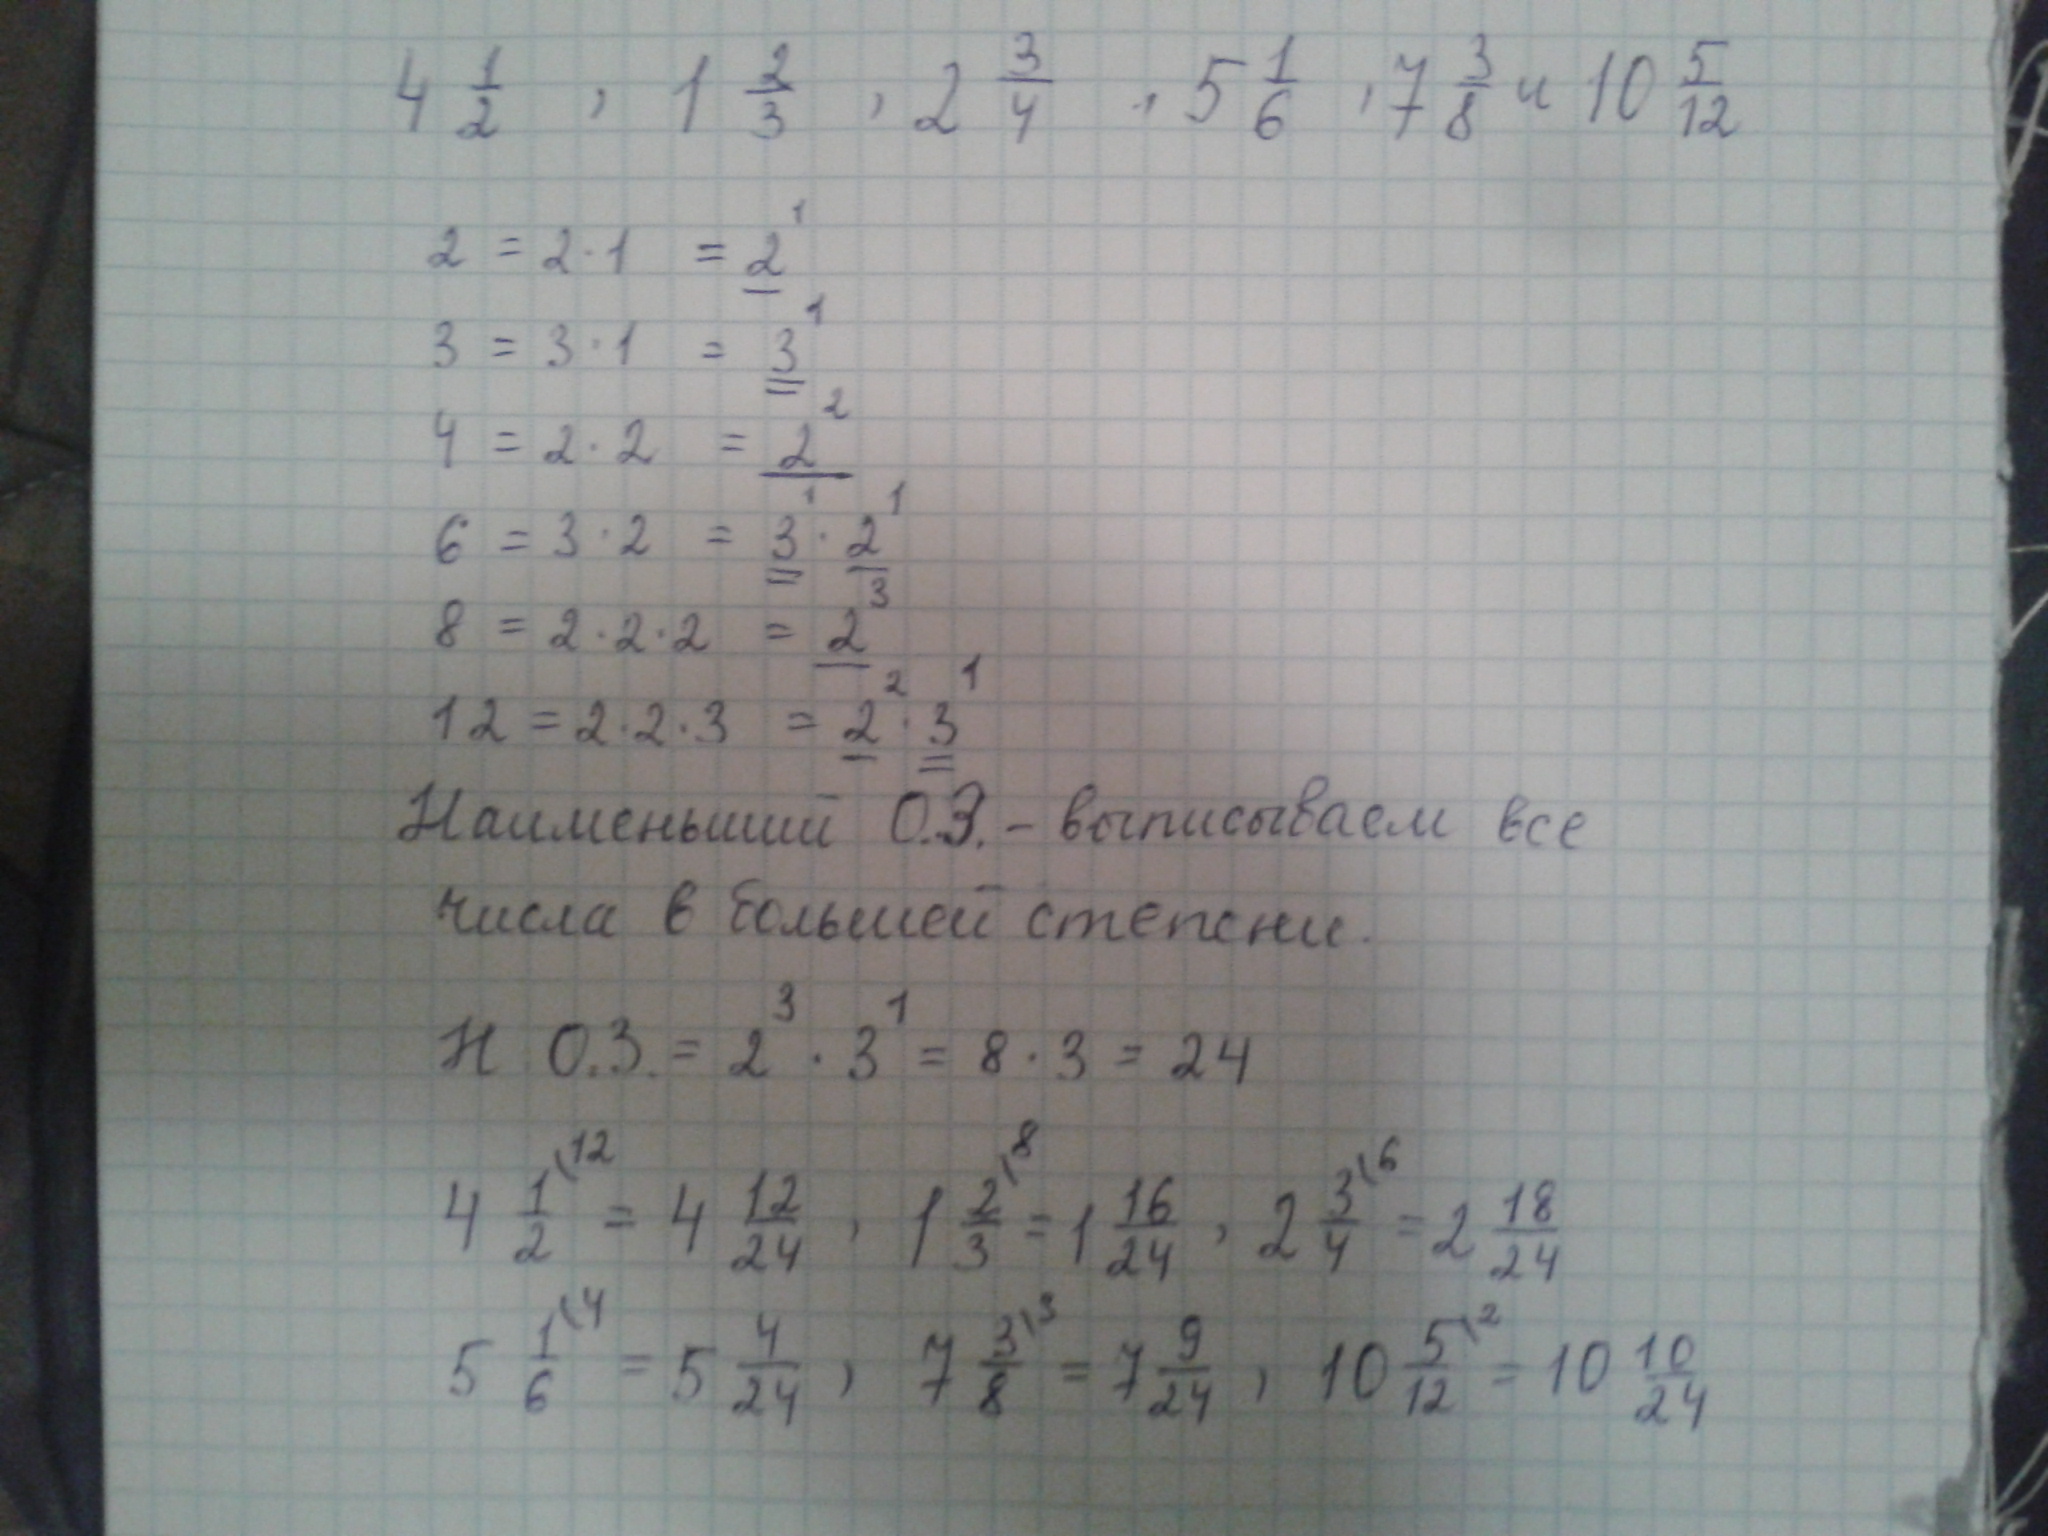 4 1/2 , 1 2/3 , 2 3/4 , 5 1/6 , 7 3/8 и 10 5/12
2 = 2·1 = 2¹
3 = 3·1 = 3¹
4 = 2·2 = 2²
6 = 3·2 = 3¹·2¹
8 = 2·2·2 = 2³
12 = 2·2·3 = 2²·3¹
Наименьший О.З. – выписываем все
числа в большей степени.
Н О.З. = 2³·3¹ = 8·3 = 24
4 1/2\12 = 4 12/24 , 1 2/3\8 = 1 16/24 , 2 3/4\6 = 2 18/24
5 1/6\4 = 5 4/24 , 7 3/8\3 = 7 9/24 , 10 5/12\2 = 10 10/24